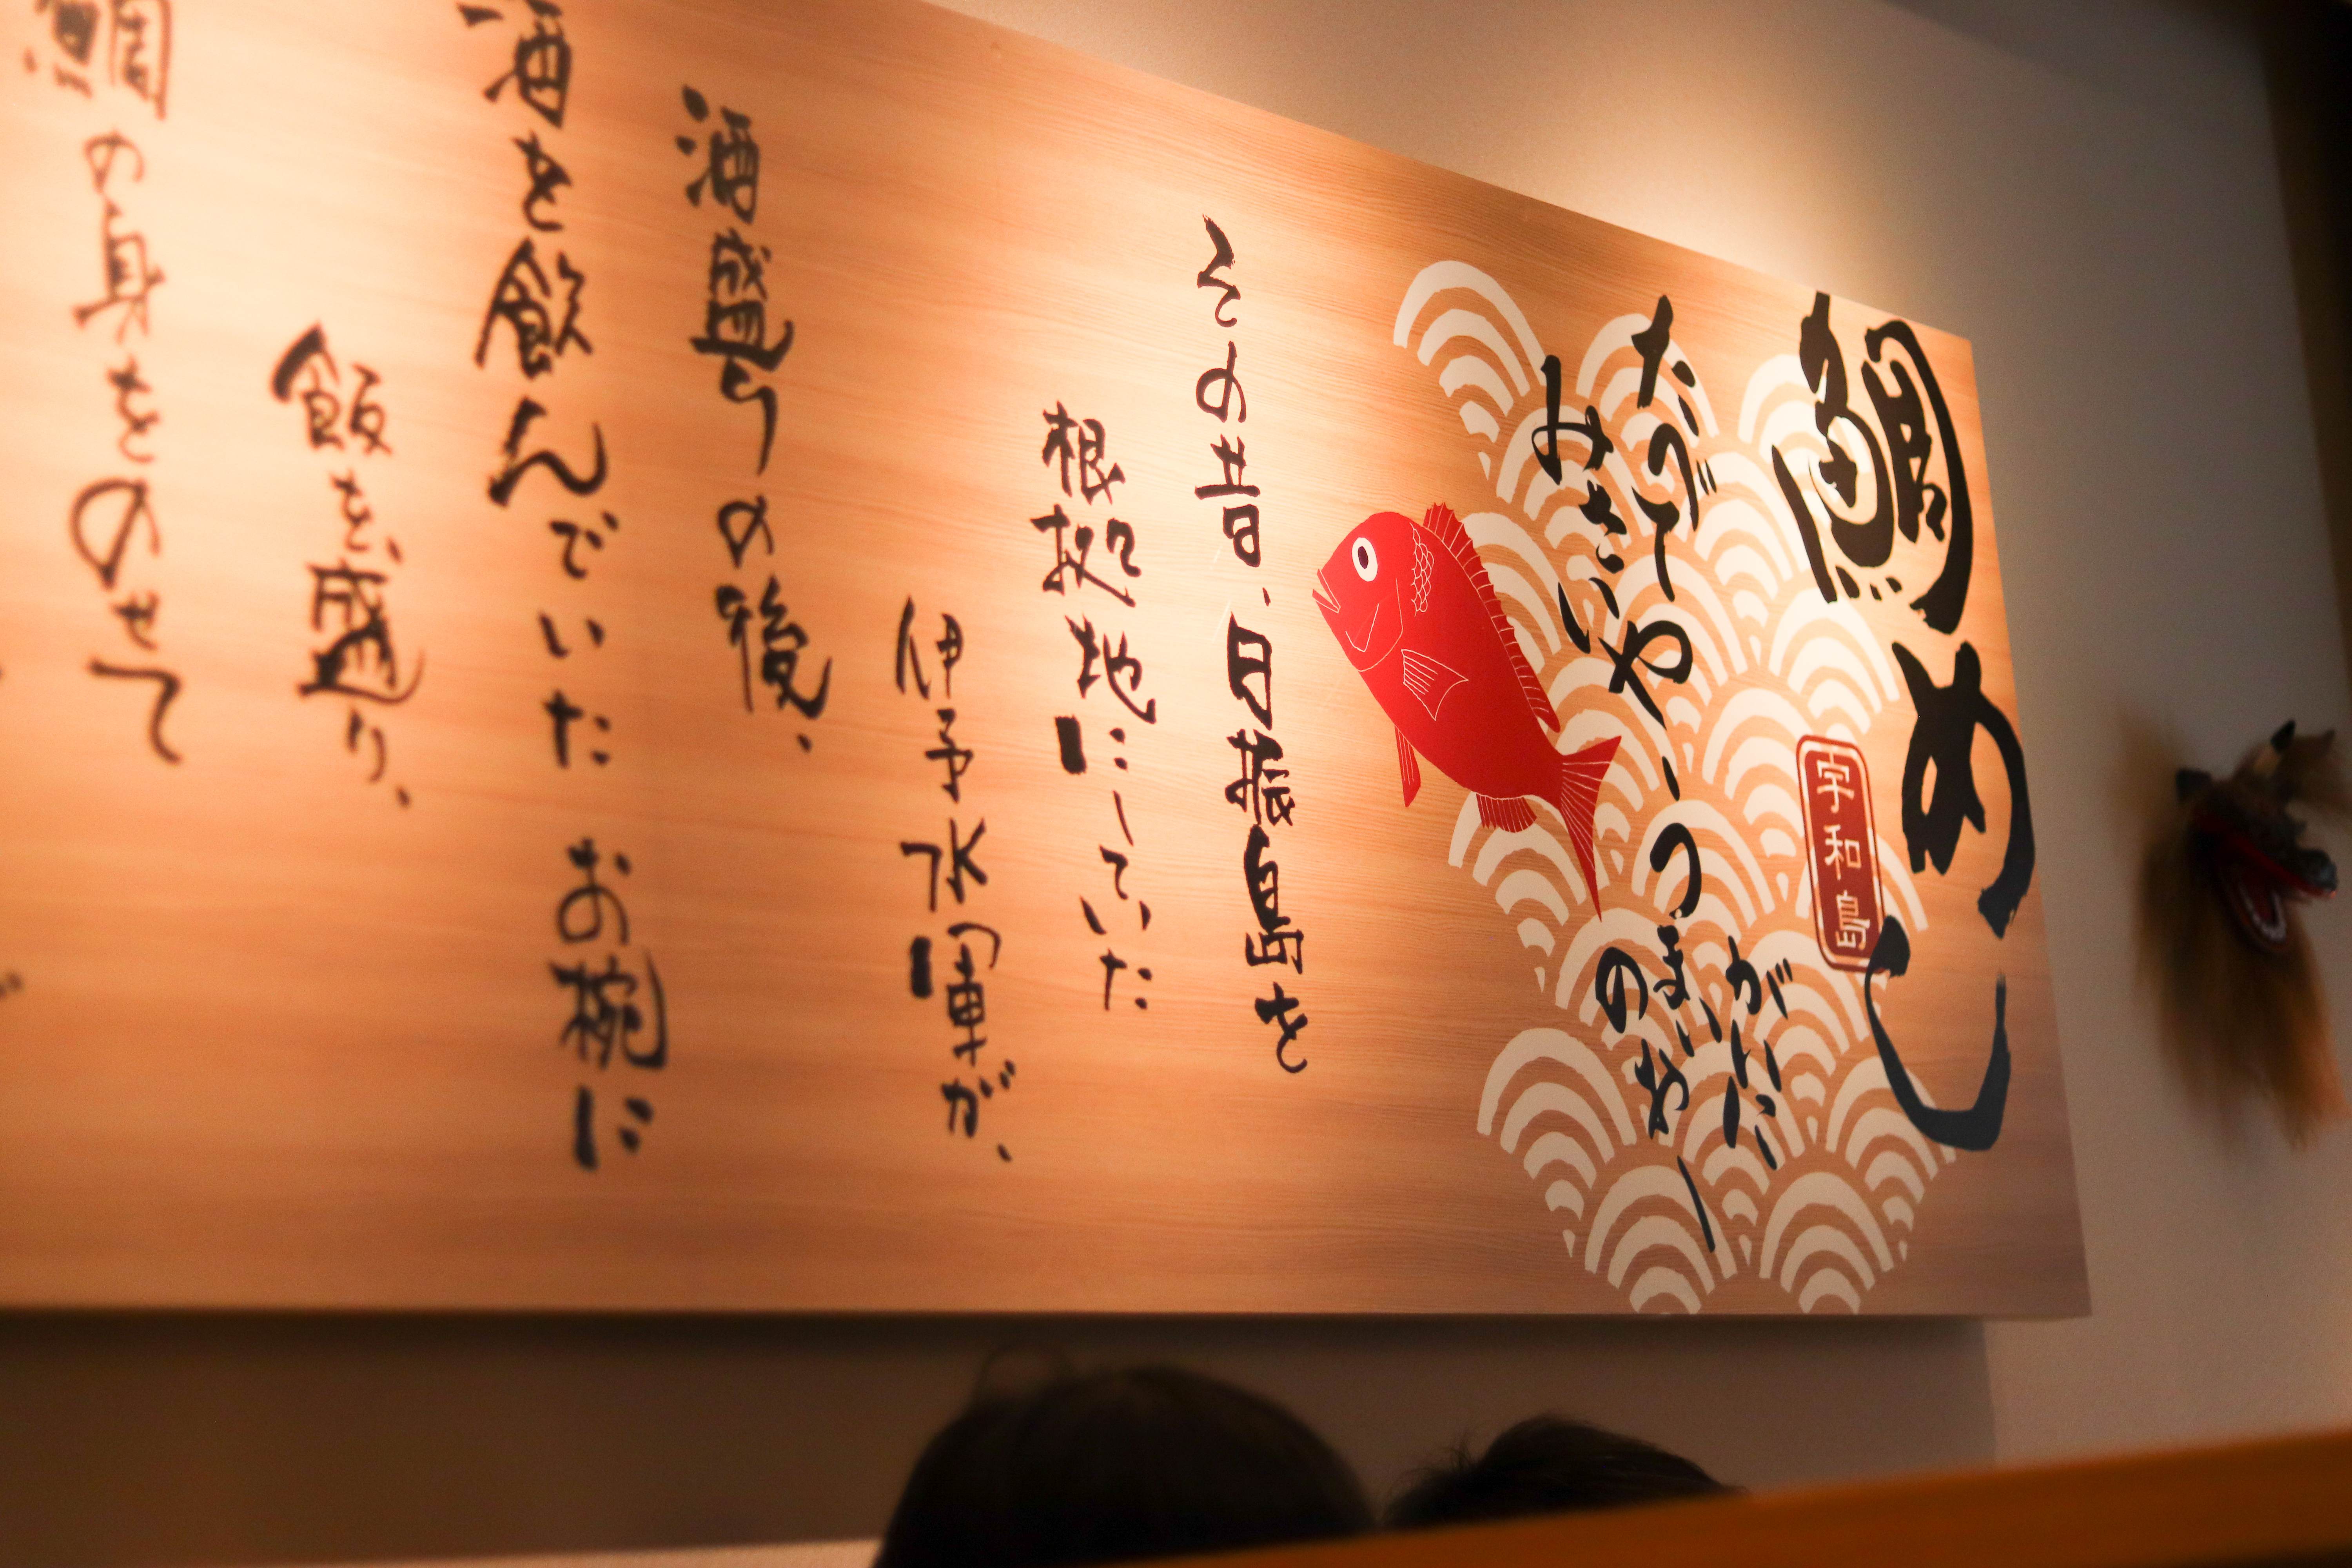 鯛めし
宇和島
がいに
うまいわー
たべてやー
みさいや
の
その昔、日振島を
根拠地にしていた
伊予水軍が、
酒盛りの後、
酒を飲んでいたお椀に
飯を盛り、
鯛の身をのせて